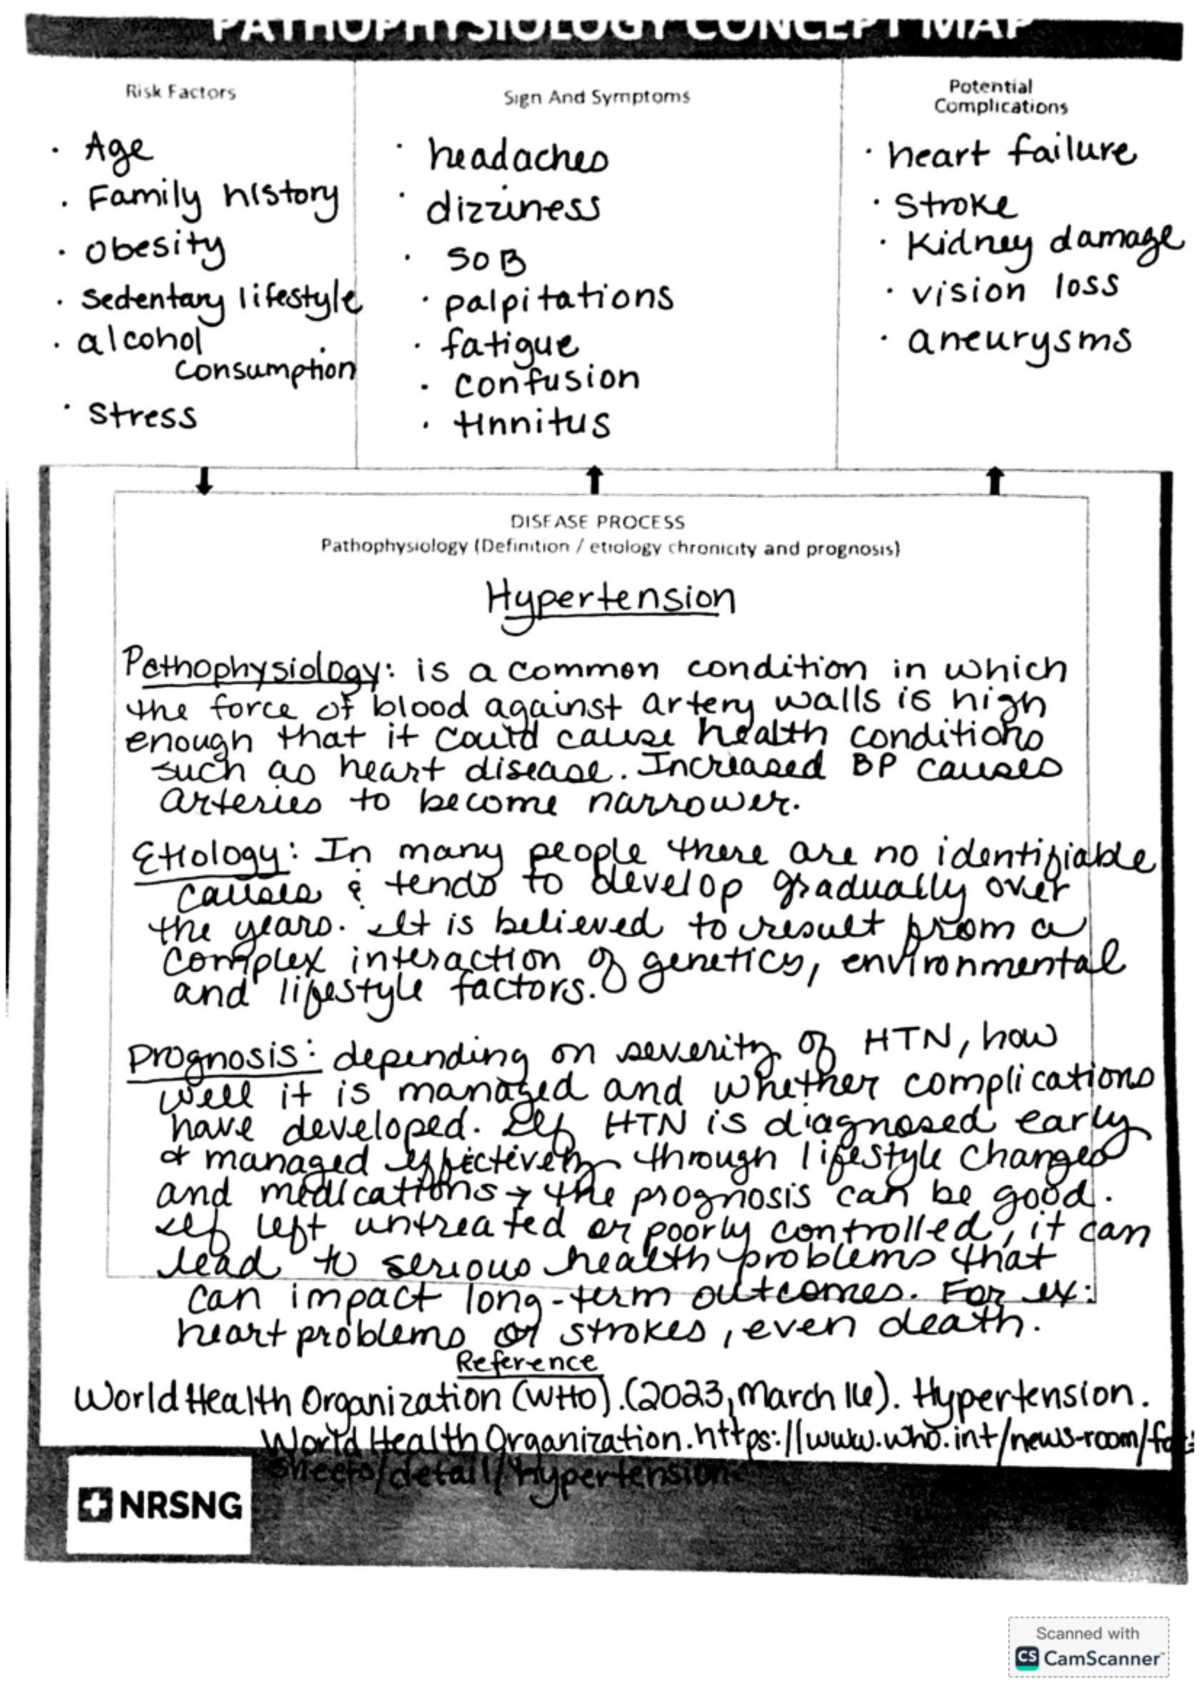 PATHOPHYSIOLOGY CONCEPT MAP
Risk Factors
· Age
· Family history
· obesity
· sedentary lifestyle
· alcohol
consumption
· stress
Sign And Symptoms
· headaches
· dizziness
· SOB
· palpitations
· fatigue
· confusion
· tinnitus
Potential
Complications
· heart failure
· stroke
· kidney damage
· vision loss
· aneurysms
DISEASE PROCESS
Pathophysiology (Definition / etiology chronicity and prognosis)
Hypertension
Pathophysiology: is a common condition in which
the force of blood against artery walls is high
enough that it could cause health conditions
such as heart disease. Increased BP causes
arteries to become narrower.
Etiology: In many people there are no identifiable
causes & tends to develop gradually over
the years. It is believed to result from a
complex interaction of genetics, environmental
and lifestyle factors.
Prognosis: depending on severity of HTN, how
well it is managed and whether complications
have developed. If HTN is diagnosed early
& managed effectively through lifestyle changes
and medications → the prognosis can be good.
If left untreated or poorly controlled, it can
lead to serious health problems that
can impact long-term outcomes. For ex:
heart problems or strokes, even death.
Reference
World Health Organization (WHO). (2023, March 16). Hypertension.
World Health Organization. https://www.who.int/news-room/
sheets/detail/hypertension
NRSNG
Scanned with
CS CamScanner